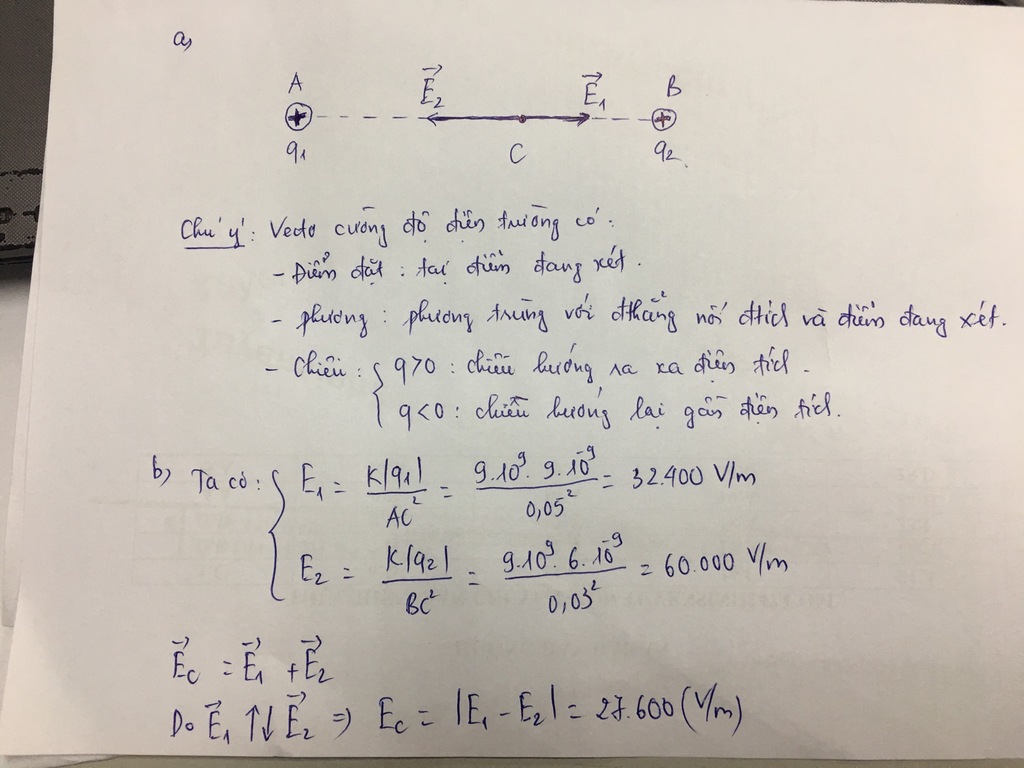 a)
A E⃗₂ E⃗₁ B
q₁ C q₂
Chú ý: Vectơ cường độ điện trường có:
- Điểm đặt : tại điểm đang xét.
- phương : phương trùng với đthẳng nối đtích và điểm đang xét.
- Chiều : { q>0 : chiều hướng ra xa điện tích.
q<0 : chiều hướng lại gần điện tích.
b) Ta có : { E₁ = K|q₁|/AC² = 9.10⁹. 9.10⁻⁹/0,05² = 32.400 V/m
E₂ = K|q₂|/BC² = 9.10⁹. 6.10⁻⁹/0,03² = 60.000 V/m
E⃗c = E⃗₁ + E⃗₂
Do E⃗₁ ↑↓ E⃗₂ => Ec = |E₁ - E₂| = 27.600 (V/m)